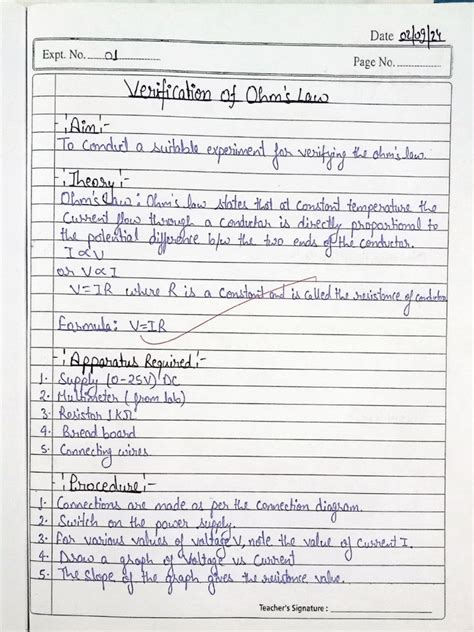 Date 02/09/24
Expt. No. 01
Page No.
Verification of Ohm's Law
Aim:-
To Conduct a suitable experiment for verifying the ohm's law.
Theory:-
Ohm's Law: Ohm's law states that at constant temperature the
Current flow through a conductor is directly proportional to
the potential difference b/w the two ends of the conductor.
I ∝ V
or V ∝ I
V = IR where R is a Constant and is called the resistance of conductor
Formula: V=IR
Apparatus Required:-
1. Supply (0-25V) DC
2. Multimeter (from lab)
3. Resistor 1KΩ
4. Bread board
5. Connecting wires
Procedure:-
1. Connections are made as per the connection diagram.
2. Switch on the power supply.
3. For various values of voltage V, note the value of Current I.
4. Draw a graph of Voltage vs Current
5. The slope of the graph gives the resistance value.
Teacher's Signature :